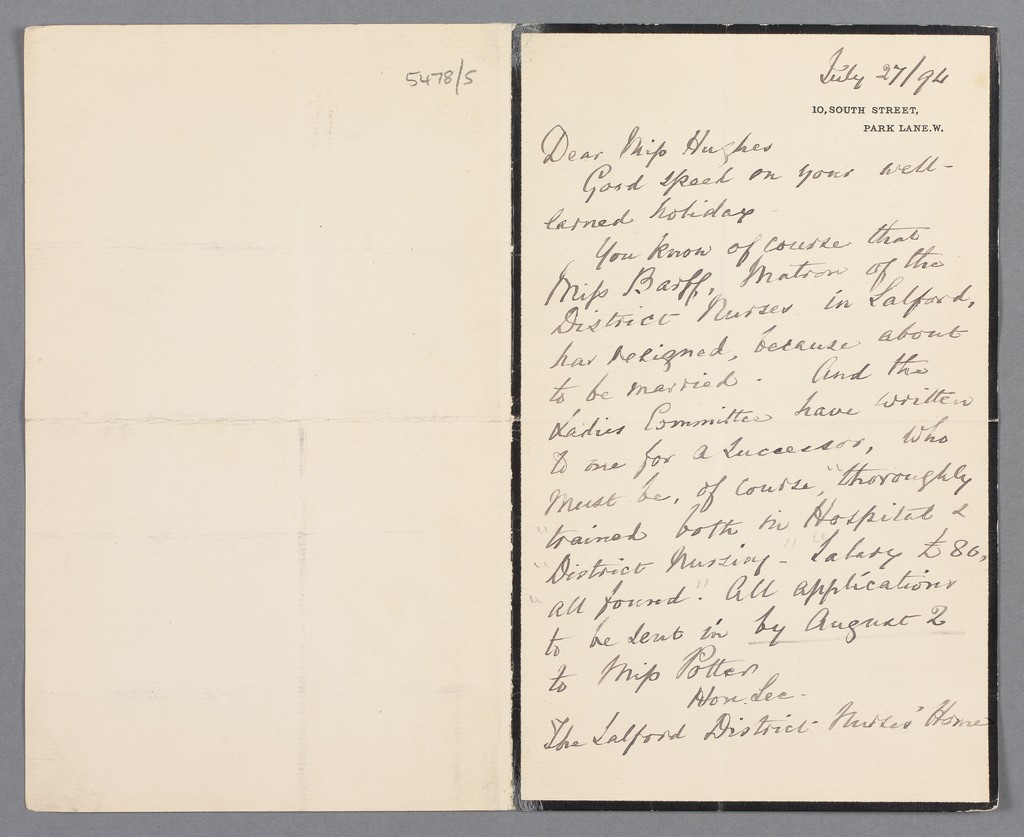 5478/5
July 27/94
10, SOUTH STREET,
PARK LANE. W.
Dear Miss Hughes
Good speed on your well-
earned holiday
You know of course that
Miss Barff, Matron of the
District Nurses in Salford,
has resigned, because about
to be married. And the
Ladies Committee have written
to me for a successor, who
must be, of course, "thoroughly
"trained both in Hospital &
"District Nursing - "Salary £80,
"all found". All applications
to be sent in by August 2
to Miss Potter
Hon. Sec.
The Salford District Nurses' Home